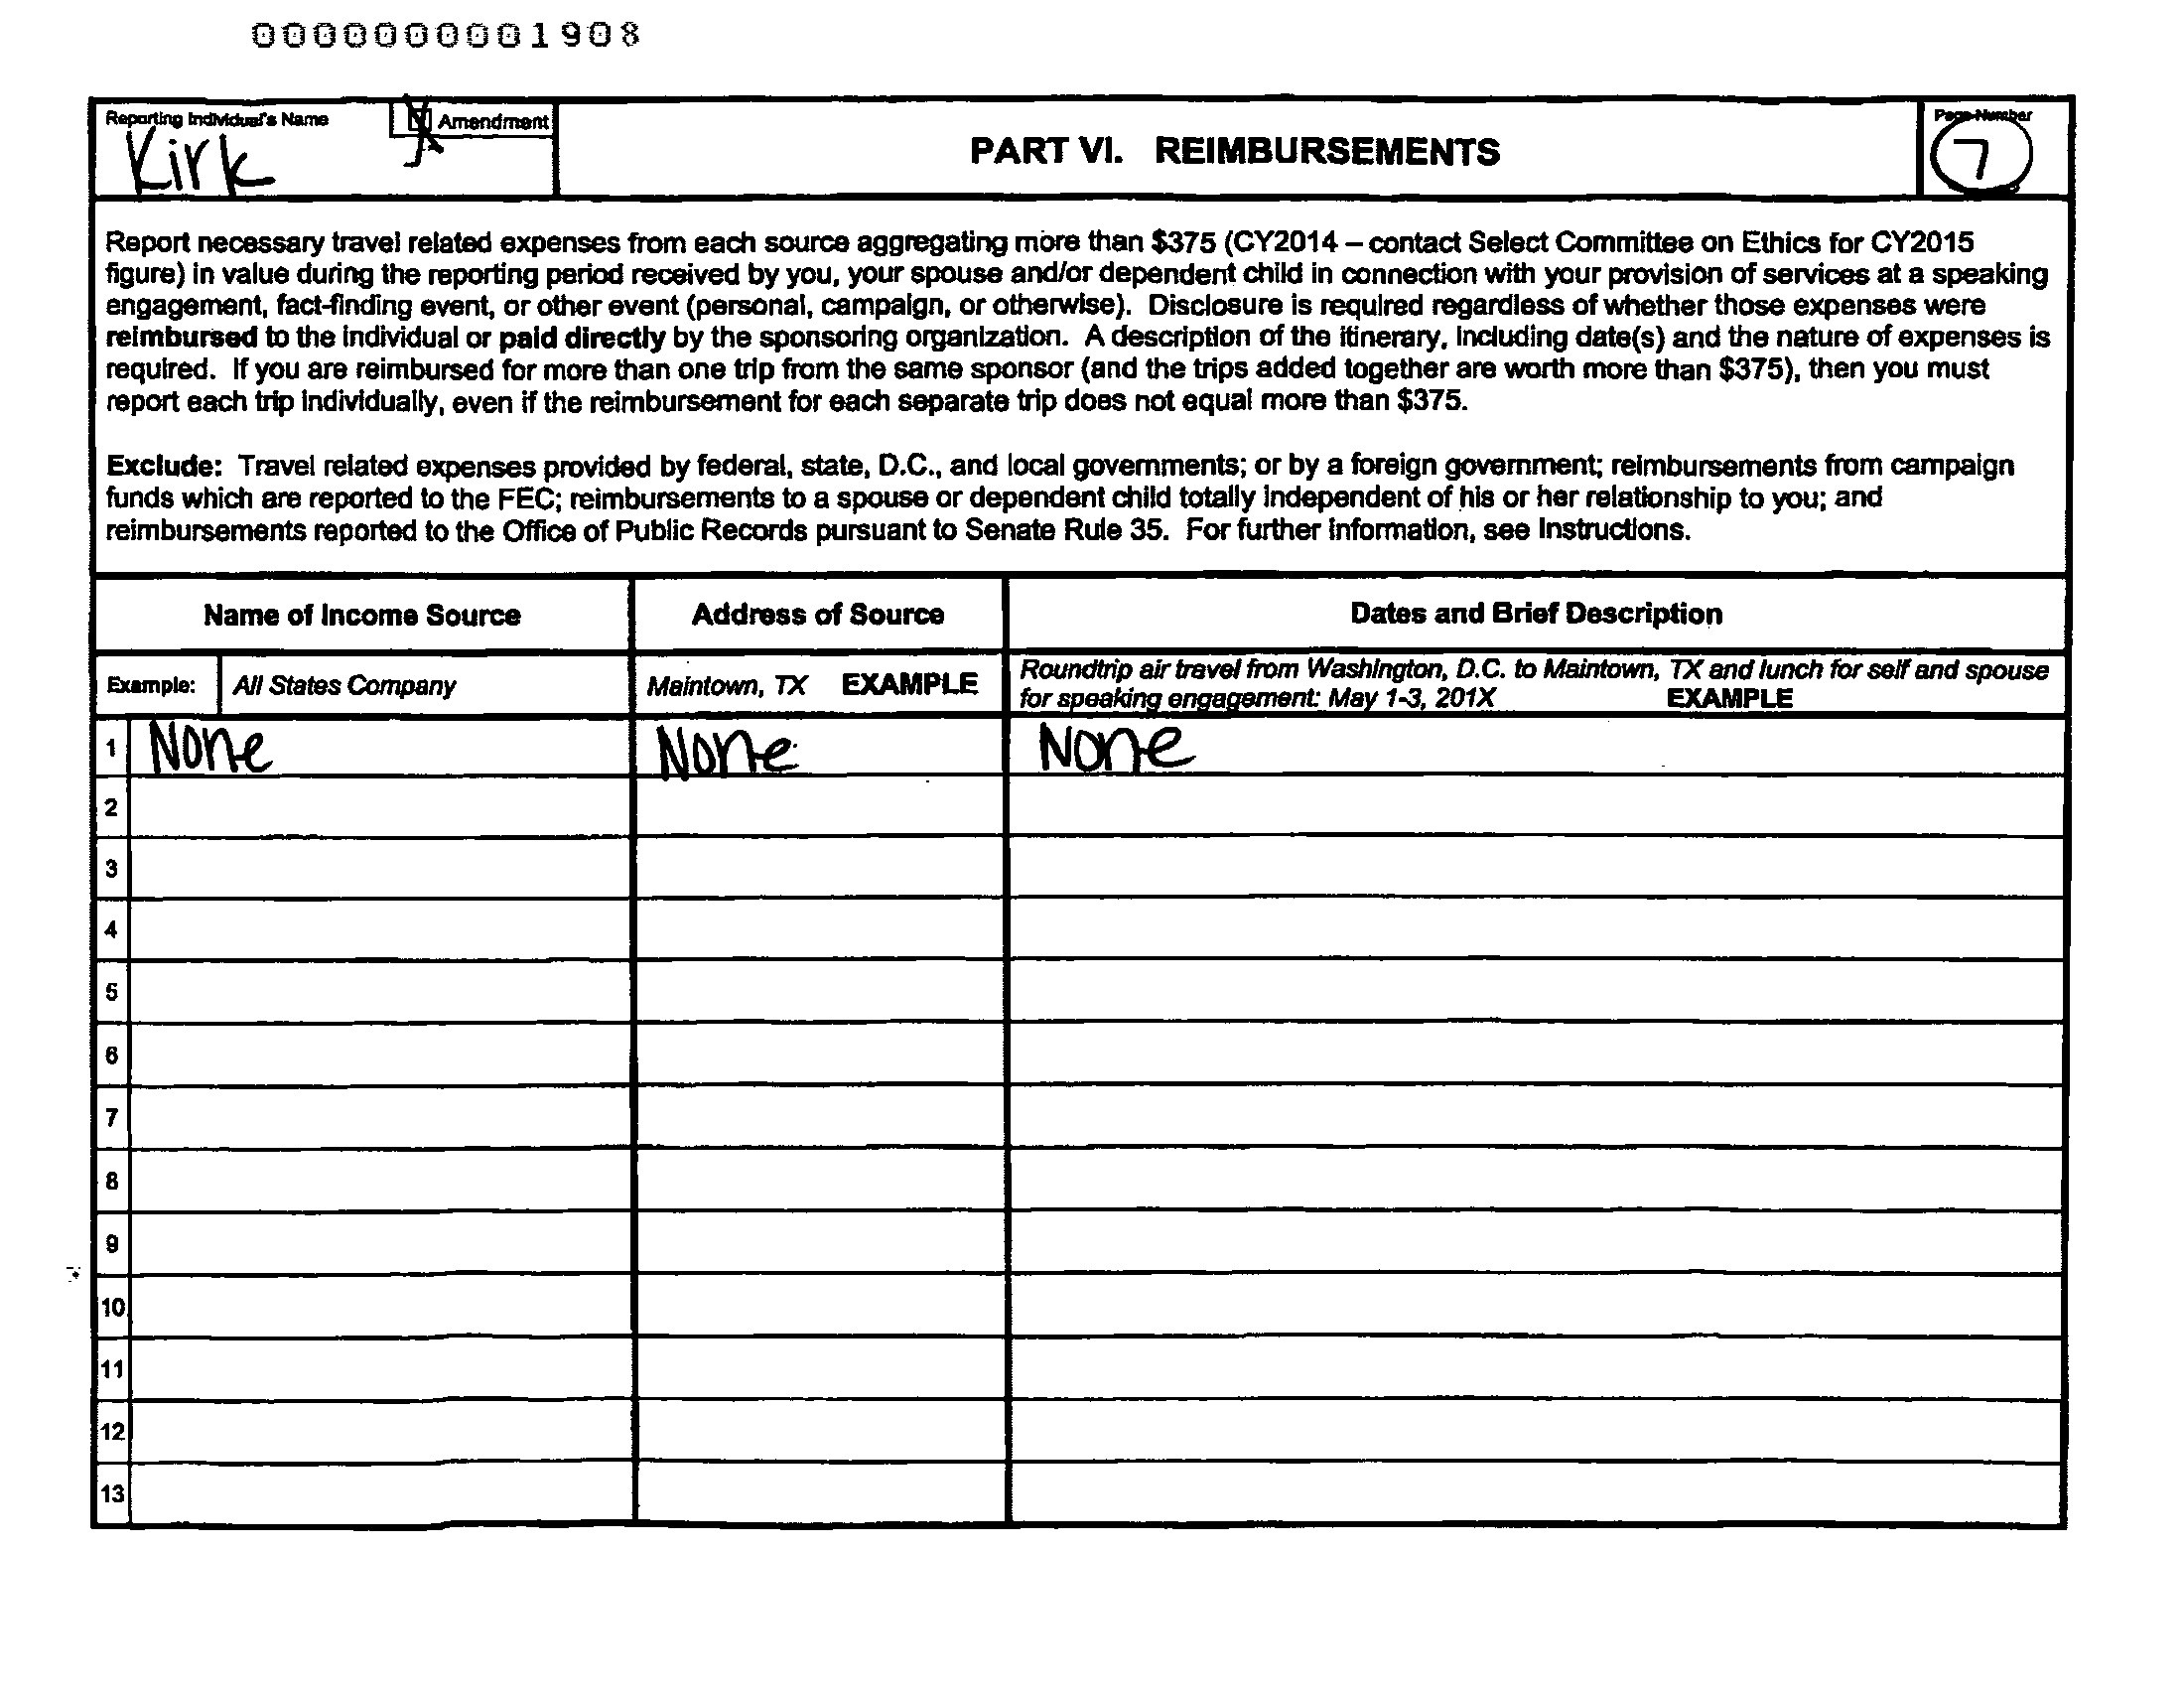 0000000001908
Reporting Individual's Name
Kirk
Amendment
PART VI. REIMBURSEMENTS
Page Number
7
Report necessary travel related expenses from each source aggregating more than $375 (CY2014 – contact Select Committee on Ethics for CY2015
figure) in value during the reporting period received by you, your spouse and/or dependent child in connection with your provision of services at a speaking
engagement, fact-finding event, or other event (personal, campaign, or otherwise). Disclosure is required regardless of whether those expenses were
reimbursed to the individual or paid directly by the sponsoring organization. A description of the itinerary, including date(s) and the nature of expenses is
required. If you are reimbursed for more than one trip from the same sponsor (and the trips added together are worth more than $375), then you must
report each trip individually, even if the reimbursement for each separate trip does not equal more than $375.
Exclude: Travel related expenses provided by federal, state, D.C., and local governments; or by a foreign government; reimbursements from campaign
funds which are reported to the FEC; reimbursements to a spouse or dependent child totally independent of his or her relationship to you; and
reimbursements reported to the Office of Public Records pursuant to Senate Rule 35. For further information, see Instructions.
Name of Income Source Address of Source Dates and Brief Description
Example: All States Company Maintown, TX EXAMPLE Roundtrip air travel from Washington, D.C. to Maintown, TX and lunch for self and spouse
for speaking engagement: May 1-3, 201X EXAMPLE
1 None None None
2
3
4
5
6
7
8
9
10
11
12
13